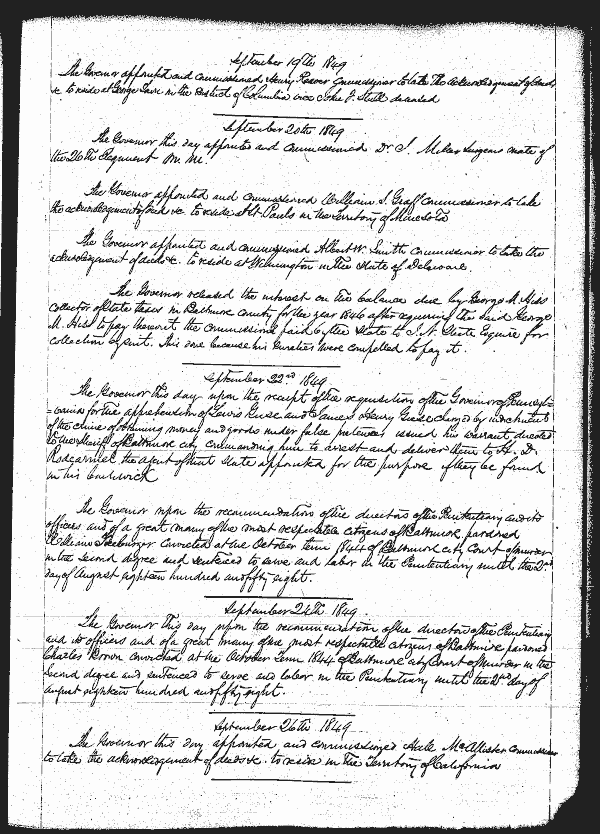 September 19th 1849
The Govenor appointed and commissioned Henry Reaver Commissioner to take the acknowledgment of deeds
&c to reside at George Town in the District of Columbia vice John J. Stull deceased
September 20th 1849
The Governor this day appointed and commissioned Dr. S. Miles Surgeons mate of
the 26th Regiment M. Mi.
The Governor appointed and commissioned William S. Graff commissioner to take
the acknowledgment of deed &c to reside at St Pauls in the Territory of Minesota
The Governor appointed and commissioned Albert W. Smith commissioner to take the
acknowledgment of deeds &c. to reside at Wilmington in the State of Delaware.
The Governor released the interest on the balance due by George M. Hiss
collector of State taxes in Baltimore County for the year 1846 after requiring the said George
M. Hiss to pay the commissions paid by the State to Esquire for
collection by suit. This done because his sureties were compelled to pay it.
September 22nd 1849
The Governor this day upon the receipt of the requisition of the Governor of Pennsyl=
=vania for the apprehension of Lewis Guise and James Henry Guise charged by indictments
of the crime of obtaining money and goods under false pretences issued his warrant directed
to the Sheriff of Baltimore city commanding him to arrest and deliver them to
the agent of that State appointed for the purpose if they be found
in his bailiwick
The Governor upon the recommendation of the directors of the Penitentiary and its
officers and of a great many of the most respectable citizens of Baltimore pardoned
William convicted at the October term 1844 of Baltimore city Court of murder
in the second degree and sentenced to serve and labor in the Penitentiary until the 2nd
day of August eighteen hundred and fifty eight.
September 24th 1849
The Governor this day upon the recommendation of the directors of the Penitentiary
and its officers and of a great many of the most respectable citizens of Baltimore pardoned
Charles Brown convicted at the October Term 1844 of Baltimore city Court of murder in the
second degree and sentenced to serve and labor in the Penitentiary until the 2nd day of
august eighteen hundred and fifty eight.
September 26th 1849
The Governor this day appointed and commissioned Hall McAllister Commissioner
to take the acknowledgment of deeds &c. to reside in the Territory of California